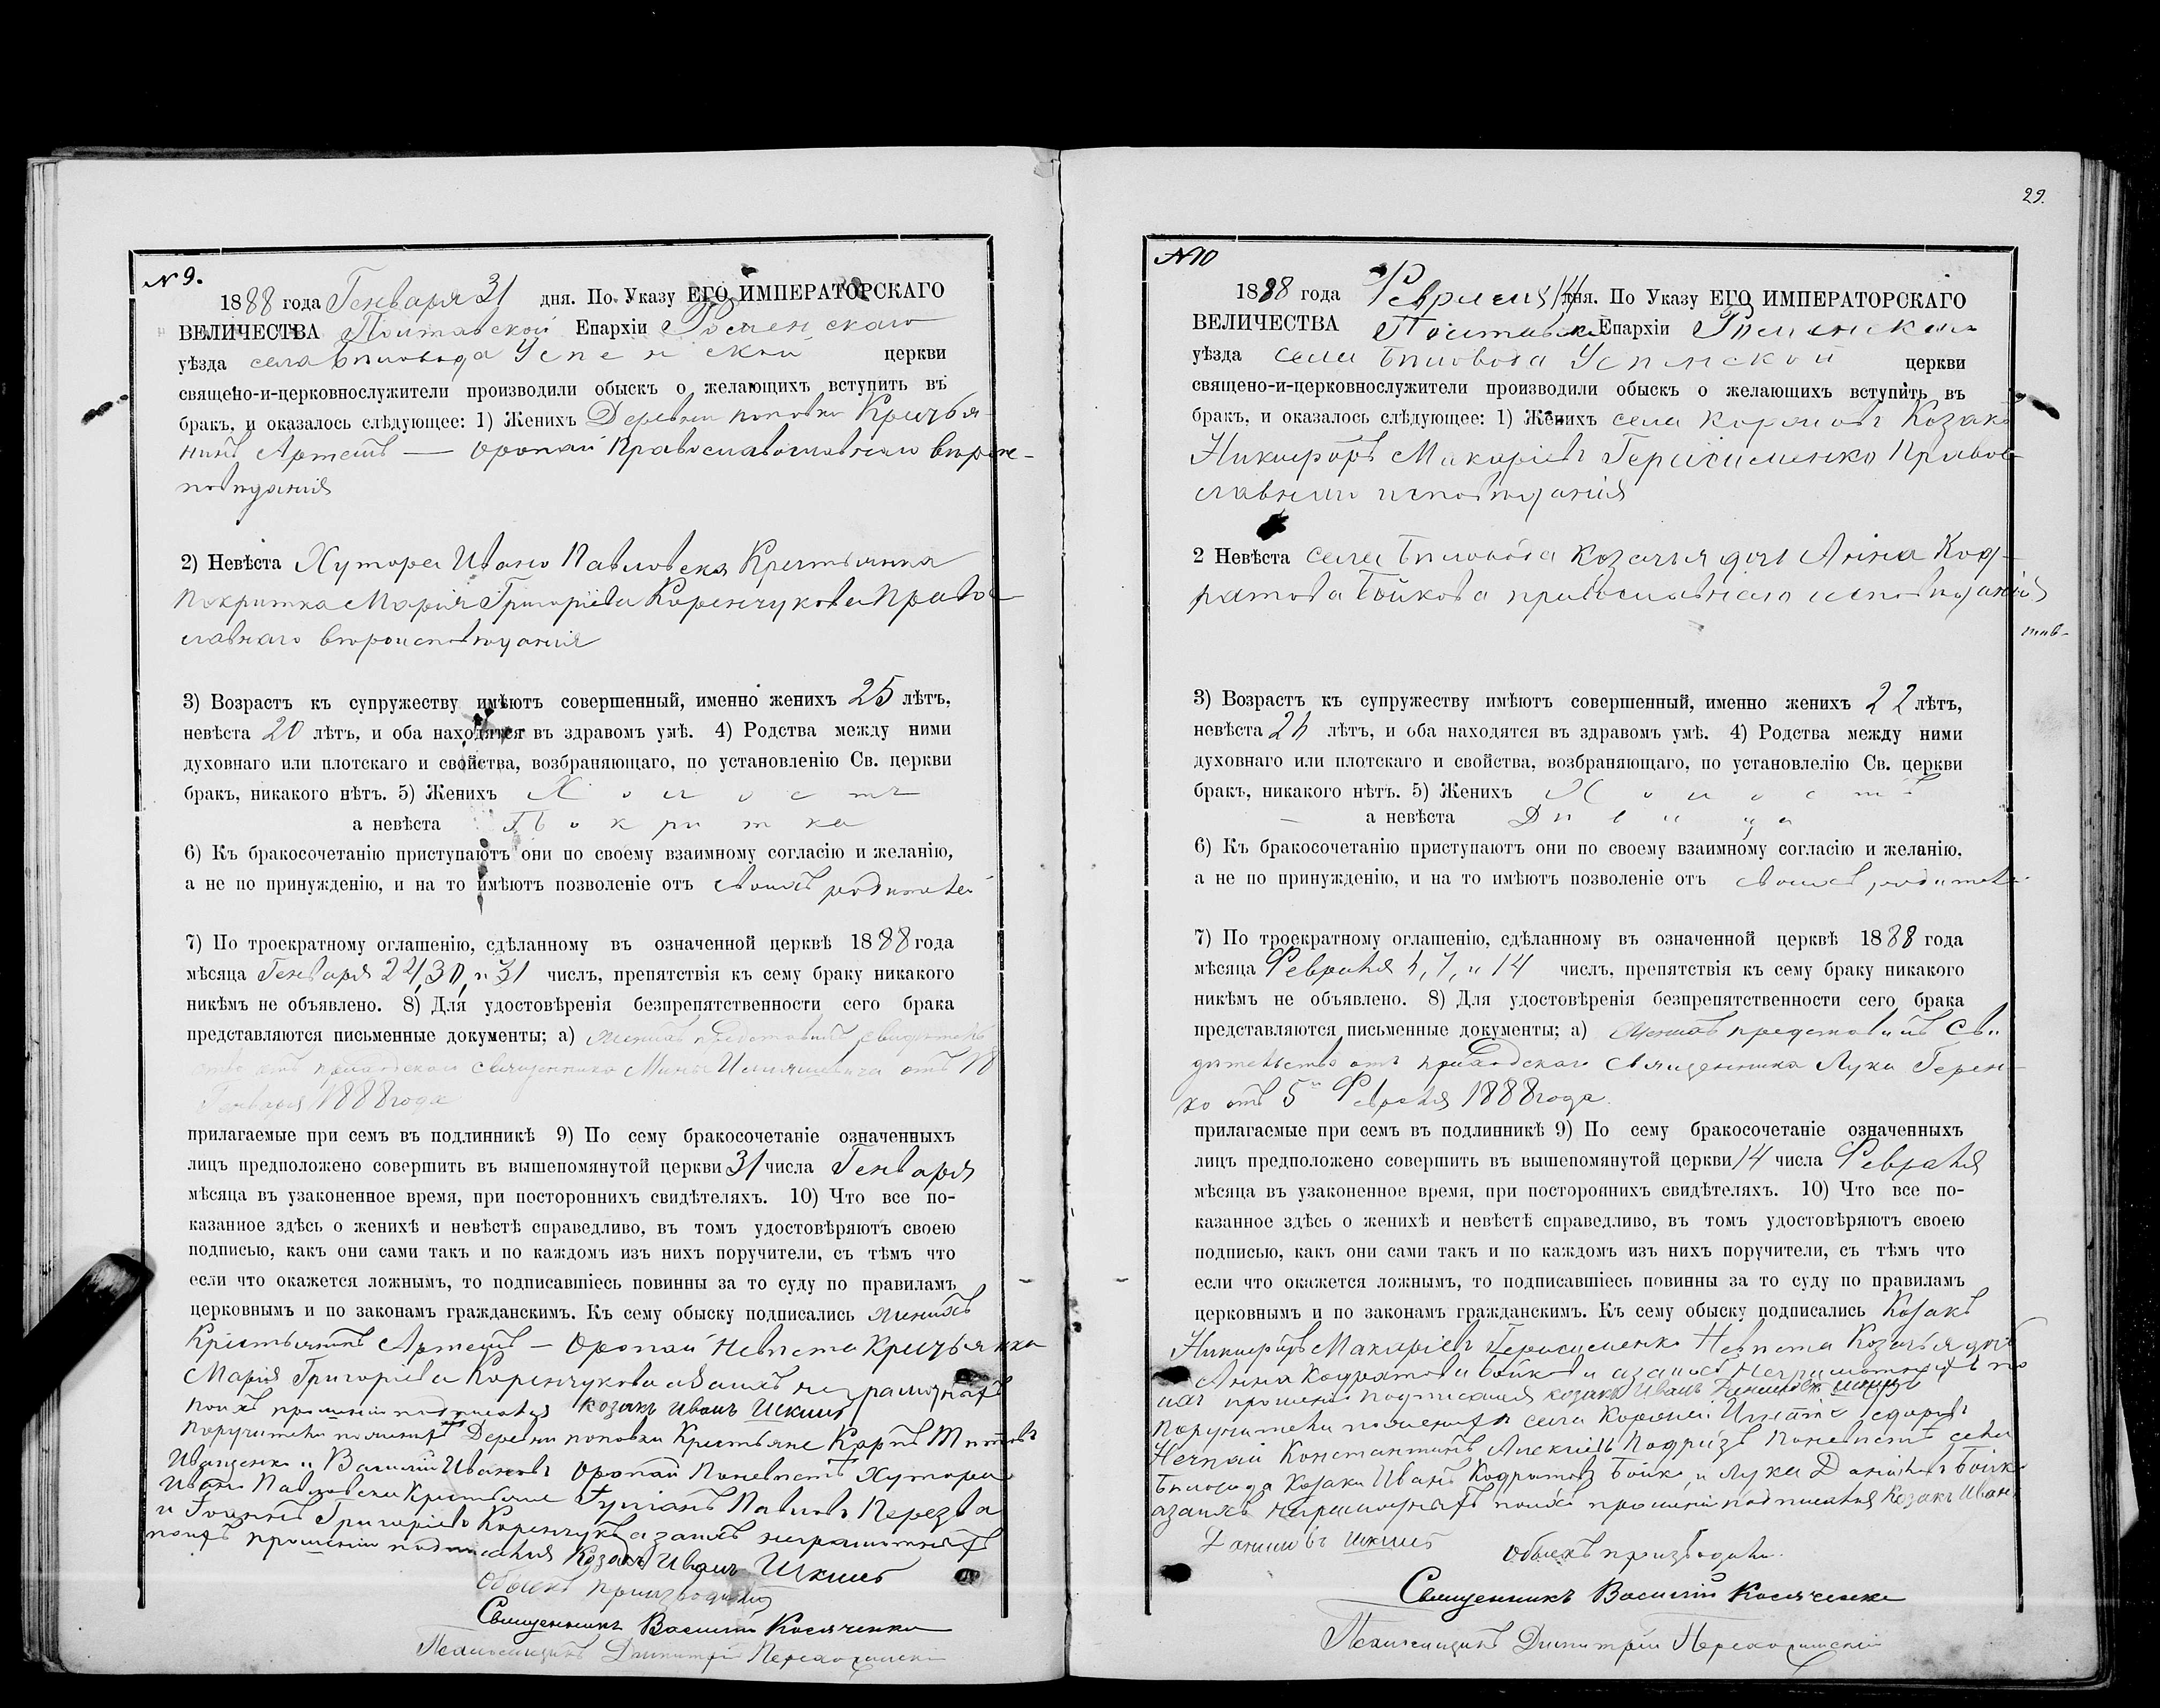 29.
N 9.
1888 года Генваря 31 дня. По Указу ЕГО ИМПЕРАТОРСКАГО
ВЕЛИЧЕСТВА Полтавской Епархіи Роменскаго
уѣзда села Бѣловода Успенской церкви
священо-и-церковнослужители производили обыскъ о желающихъ вступить въ
бракъ, и оказалось слѣдующее: 1) Женихъ Деревни поповки Крестья-
нинъ Артемъ — Оропай
2) Невѣста Хутора Ивано Павловска Крестьянка
Покритка Марія Григоріева Коренчукова Право-
славнаго вѣроисповѣданія
3) Возрастъ къ супружеству имѣютъ совершенный, именно женихъ 25 лѣтъ,
невѣста 20 лѣтъ, и оба находятся въ здравомъ умѣ. 4) Родства между ними
духовнаго или плотскаго и свойства, возбраняющаго, по установленію Св. церкви
бракъ, никакого нѣтъ. 5) Женихъ Холостъ
а невѣста Покритка
6) Къ бракосочетанію приступаютъ они по своему взаимному согласію и желанію,
а не по принужденію, и на то имѣютъ позволеніе отъ своихъ родителей
7) По троекратному оглашенію, сдѣланному въ означенной церквѣ 1888 года
мѣсяца Генваря 24, 30, и 31 числъ, препятствія къ сему браку никакого
никѣмъ не объявлено. 8) Для удостовѣренія безпрепятственности сего брака
представляются письменные документы; а) женихъ представилъ свидѣтель
ство отъ приходскаго священника Мины отъ 18
Генваря 1888 года
прилагаемые при семъ въ подлинникѣ 9) По сему бракосочетаніе означенныхъ
лицъ предположено совершить въ вышепомянутой церкви 31 числа Генваря
мѣсяца въ узаконенное время, при постороннихъ свидѣтеляхъ. 10) Что все по-
казанное здѣсь о женихѣ и невѣстѣ справедливо, въ томъ удостовѣряютъ своею
подписью, какъ они сами такъ и по каждомъ изъ нихъ поручители, съ тѣмъ что
если что окажется ложнымъ, то подписавшіесь повинны за то суду по правиламъ
церковнымъ и по законамъ гражданскимъ. Къ сему обыску подписались женихъ
Крестьянинъ Артемъ — Оропай Невѣста Крестьянка
Марія Григоріева Коренчукова а заихъ неграмотныхъ
поихъ прошенію подписался козакъ Иванъ Шкиль
Поручители поженихѣ Деревни поповки Крестьяне Карпъ Титовъ
Иващенко и Василій Ивановъ Оропай Поневѣстѣ Хутора
Ивано Павловска Крестьяне Павловъ Перезва
и Іоаннъ Григоріевъ Коренчукъ а заихъ неграмотныхъ
поихъ прошенію подписался Козакъ Иванъ Шкиль
Обыскъ производили
Священникъ Василій Косяченко
Псаломщикъ Димитрій
N 10
1888 года Февраля 14 дня. По Указу ЕГО ИМПЕРАТОРСКАГО
ВЕЛИЧЕСТВА Полтавской Епархіи Роменскаго
уѣзда села Бѣловода Успенской церкви
священо-и-церковнослужители производили обыскъ о желающихъ вступить въ
бракъ, и оказалось слѣдующее: 1) Женихъ села Козакъ
Никифоръ Макаріевъ Герасименко Право-
славнаго исповѣданія
2 Невѣста села Бѣловода козачья дочь Анна Код-
ратова Бойкова православнаго исповѣданія
3) Возрастъ къ супружеству имѣютъ совершенный, именно женихъ 22 лѣтъ,
невѣста лѣтъ, и оба находятся въ здравомъ умѣ. 4) Родства между ними
духовнаго или плотскаго и свойства, возбраняющаго, по установлелію Св. церкви
бракъ, никакого нѣтъ. 5) Женихъ Холостъ
а невѣста Дѣвица
6) Къ бракосочетанію приступаютъ они по своему взаимному согласію и желанію,
а не по принужденію, и на то имѣютъ позволеніе отъ своихъ родителей
7) По троекратному оглашенію, сдѣланному въ означенной церквѣ 1888 года
мѣсяца Февраля 7, и 14 числъ, препятствія къ сему браку никакого
никѣмъ не объявлено. 8) Для удостовѣренія безпрепятственности сего брака
представляются письменные документы; а) женихъ представилъ сви
дѣтельство отъ приходскаго священника Луки Герен-
ко отъ 5го Февраля 1888 года
прилагаемые при семъ въ подлинникѣ 9) По сему бракосочетаніе означенныхъ
лицъ предположено совершить въ вышепомянутой церкви 14 числа Февраля
мѣсяца въ узаконенное время, при постороннихъ свидѣтеляхъ. 10) Что все по-
казанное здѣсь о женихѣ и невѣстѣ справедливо, въ томъ удостовѣряютъ своею
подписью, какъ они сами такъ и по каждомъ изъ нихъ поручители, съ тѣмъ что
если что окажется ложнымъ, то подписавшіесь повинны за то суду по правиламъ
церковнымъ и по законамъ гражданскимъ. Къ сему обыску подписались Козакъ
Никифоръ Макаріевъ Герасименко Невѣста Козачья дочь
Анна Кодратова Бойкова а заихъ неграмотныхъ по
ихъ прошенію подписался козакъ Иванъ Шкиль
Поручители поженихѣ села
Нечпай Константинъ Алексіевъ Подрізъ Поневѣстѣ села
Бѣловода Козаки Иванъ Кодратовъ Бойко и Лука Даніиловъ Бойко
азаихъ неграмотныхъ поихъ прошенію подписался Козакъ Иванъ
Шкиль
Обыскъ производили
Священникъ Василій Косяченко
Псаломщикъ Димитрій